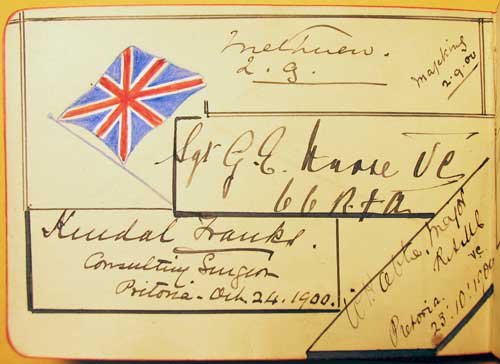 Methuen.
Mafeking
2.9.00
Sgt G.E. Nurse VC
66 RFA
Kendal Franks.
Consulting Surgeon
Pretoria - Oct. 24. 1900.
W Babtie, Major
R.A.M.C
VC
Pretoria.
23.10.1900